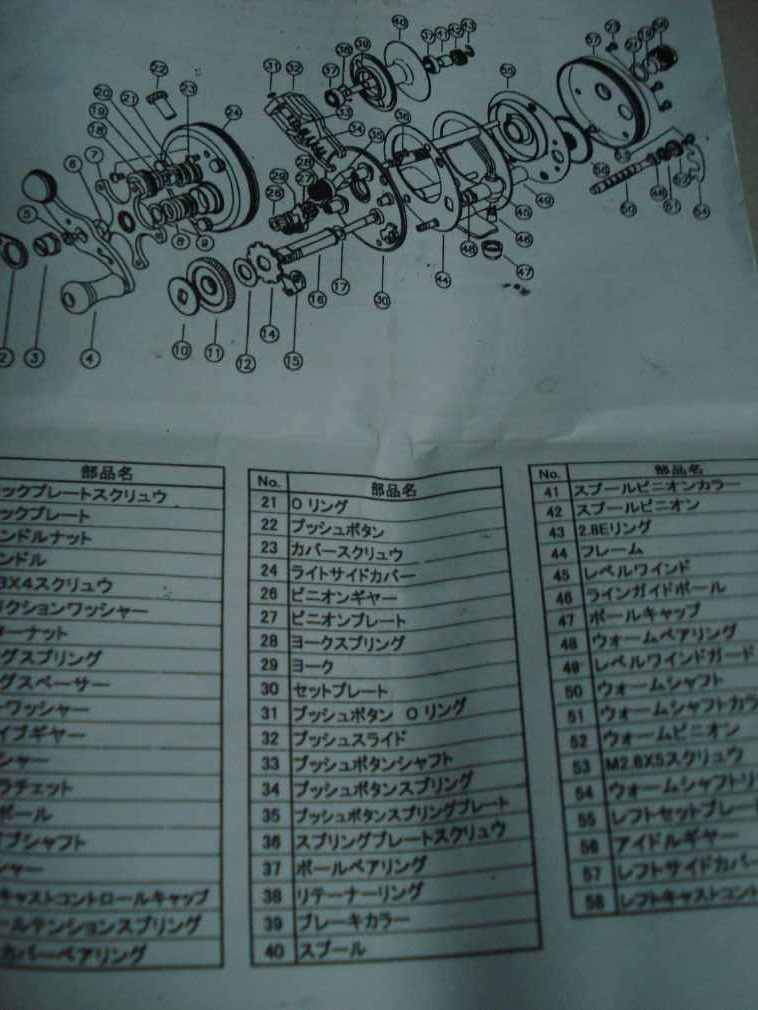 部品名
ックプレートスクリュウ
ックプレート
ンドルナット
ンドル
3X4スクリュウ
クションワッシャー
ーナット
グスプリング
グスペーサー
ーワッシャー
イブギヤー
シャー
ラチェット
ポール
ブシャフト
シャー
キャストコントロールキャップ
ールテンションスプリング
カバーベアリング
No. 部品名
21 O リング
22 プッシュボタン
23 カバースクリュウ
24 ライトサイドカバー
26 ピニオンギヤー
27 ピニオンプレート
28 ヨークスプリング
29 ヨーク
30 セットプレート
31 プッシュボタン O リング
32 プッシュスライド
33 プッシュボタンシャフト
34 プッシュボタンスプリング
35 プッシュボタンスプリングプレート
36 スプリングプレートスクリュウ
37 ボールベアリング
38 リテーナーリング
39 ブレーキカラー
40 スプール
No. 部品名
41 スプールピニオンカラー
42 スプールピニオン
43 2.8Eリング
44 フレーム
45 レベルワインド
46 ラインガイドポール
47 ポールキャップ
48 ウォームベアリング
49 レベルワインドガード
50 ウォームシャフト
51 ウォームシャフトカラ
52 ウォームピニオン
53 M2.6X5スクリュウ
54 ウォームシャフトリ
55 レフトセットプレー
56 アイドルギヤー
57 レフトサイドカバー
58 レフトキャストコント